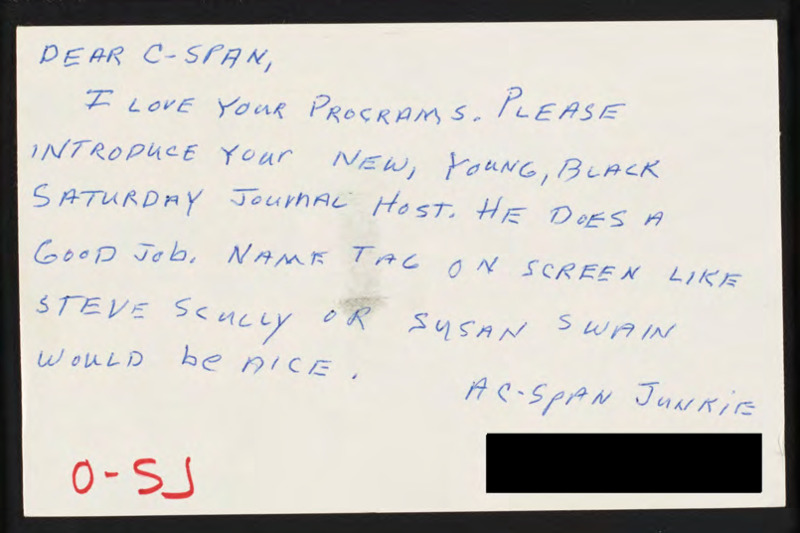 DEAR C-SPAN,
I LOVE YOUR PROGRAMS. PLEASE
INTRODUCE YOUr NEW, YOUNG, BLACK
SATURDAY JOURNAL HOST. HE DOES A
GOOD JOb. NAME TAG ON SCREEN LIKE
STEVE SCULLY OR SUSAN SWAIN
WOULD be NICE.
A C-SPAN JUNKiE
O-SJ